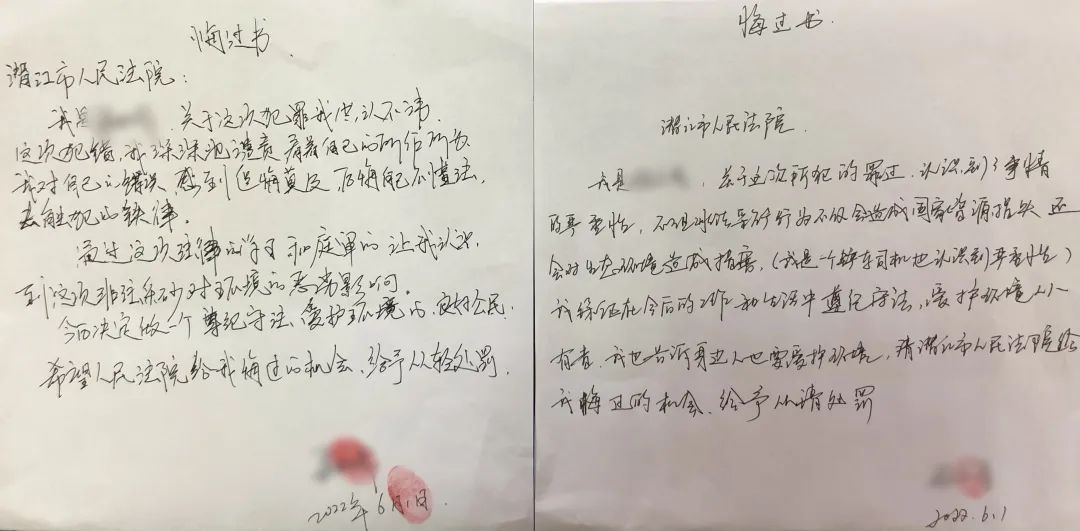 悔过书
潜江市人民法院：
我是 关于这次犯罪我供认不讳
这次犯错，我深深地谴责着自己的所作所为
我对自己的错误感到后悔莫及后悔自己不懂法，
去触犯的铁律。
通过这次法律的学习和庭审的让我认识
到这次非法采砂对环境的恶劣影响。
今后决定做一个尊纪守法、爱护环境的良好公民.
希望人民法院给我悔过的机会、给予从轻处罚.
2022年6月1日.
悔过书.
潜江市人民法院.
我是 , 关于这次所犯的罪过、认识到了事情
的严重性，不但非法采砂行为不仅会造成国家资源损失还
会对生态环境造成损害,(我是一个 车司机也认识到严重性)
我保证在今后的工作和生活中遵纪守法,爱护环境人人
有责.我也告诉身边人也要爱护环境,请潜江市人民法院给
我悔过的机会、给予从轻处罚
2022.6.1